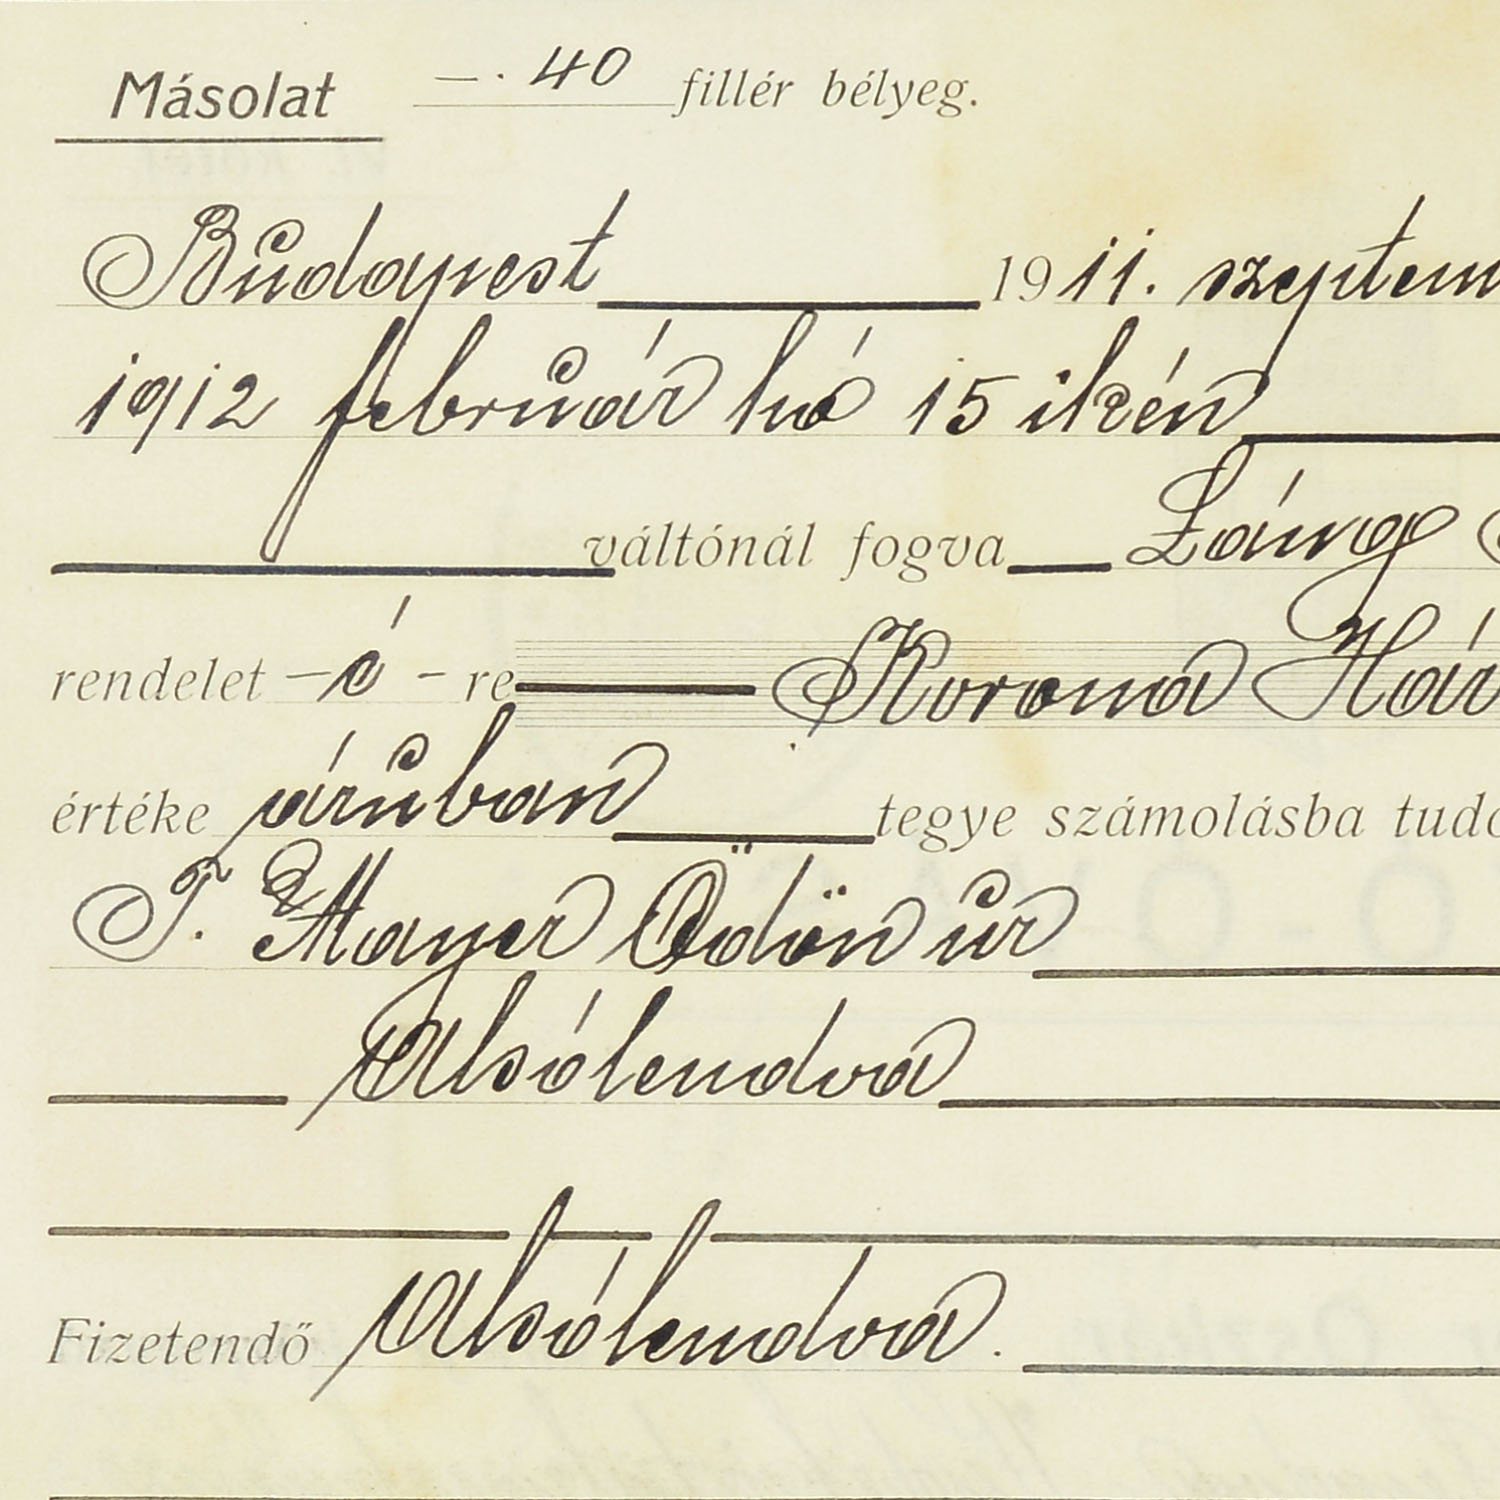 Másolat —. 40 fillér bélyeg.
Budapest 1911. szeptem
1912 február hó 15 ikén
váltónál fogva Láng
rendelet – ó – re Korona Hár
értéke áruban tegye számolásba tudó
T. Mayer Ödön úr
Alsólendva
Fizetendő Alsólendva.